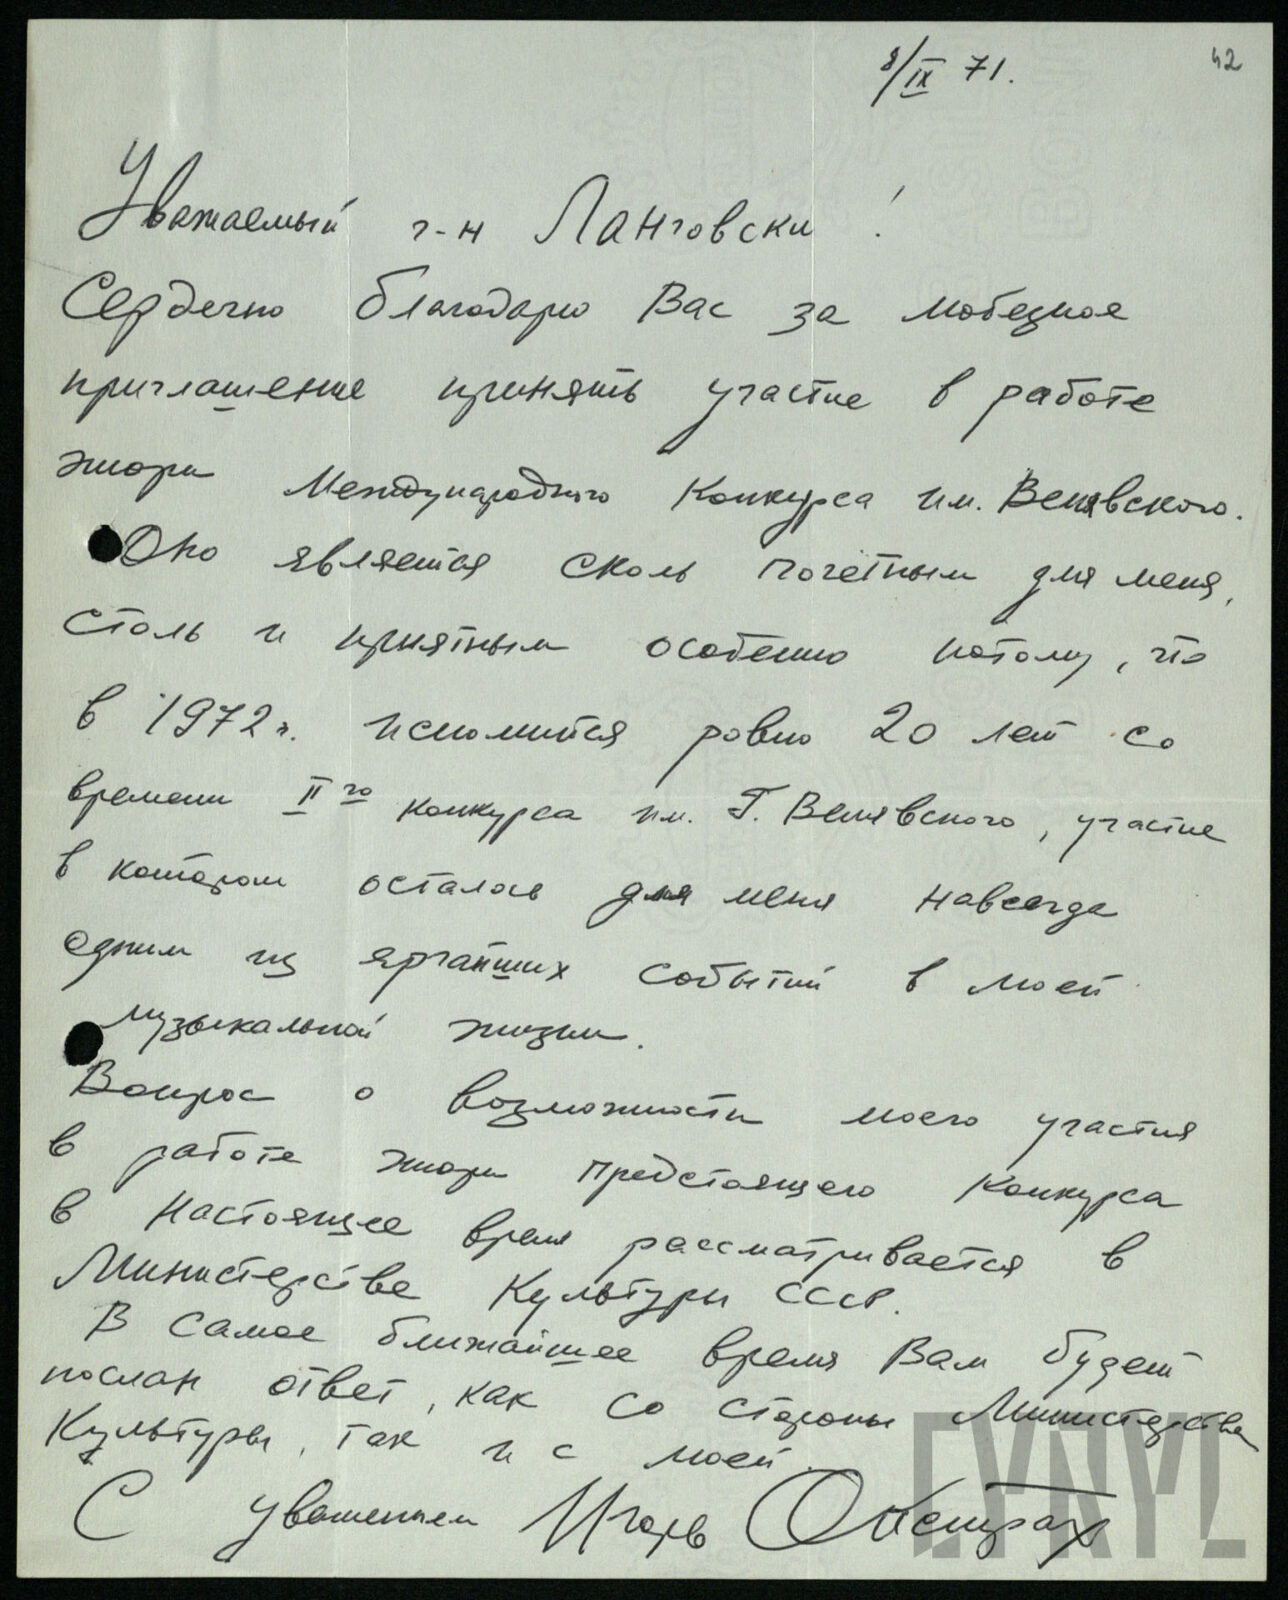 8/IX 71.
42
Уважаемый г-н Ланговски!
Сердечно благодарю Вас за любезное
приглашение принять участие в работе
жюри Международного Конкурса им. Венявского.
Оно является сколь почётным для меня,
столь и приятным особенно потому, что
в 1972 г. исполнится ровно 20 лет со
времени II го конкурса им. Г. Венявского, участие
в котором осталось для меня навсегда
одним из ярчайших событий в моей
музыкальной жизни.
Вопрос о возможности моего участия
в работе жюри предстоящего Конкурса
в настоящее время рассматривается в
Министерстве Культуры СССР.
В самое ближайшее время Вам будет
послан ответ, как со стороны Министерства
Культуры, так и с моей.
С уважением Игорь Ойстрах